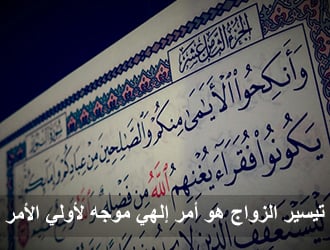 الجزء الثامن عشر
وَأَنكِحُوا۟ ٱلْأَيَـٰمَىٰ مِنكُمْ وَٱلصَّـٰلِحِينَ مِنْ عِبَادِكُمْ وَإِمَآئِكُمْ
يَكُونُوا۟ فُقَرَآءَ يُغْنِهِمُ ٱللَّهُ مِن فَضْلِهِۦ
تيسير الزواج هو أمر إلهي موجه لأولي الأمر